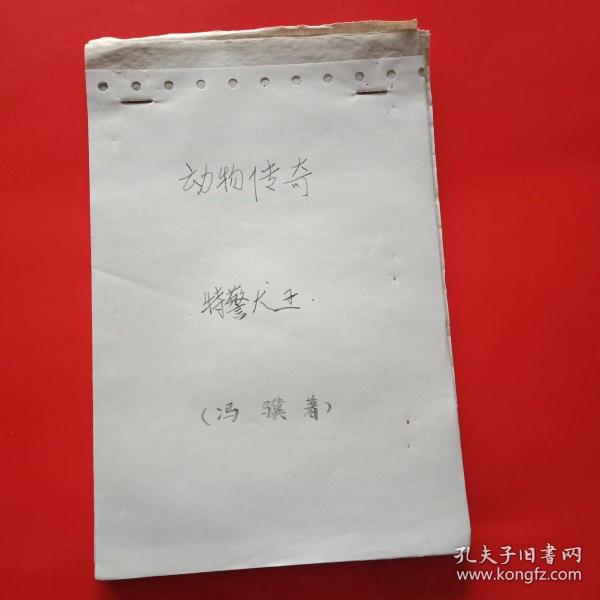 动物传奇
特警犬王.
(冯骥著)
孔夫子旧书网
www.kongfz.com